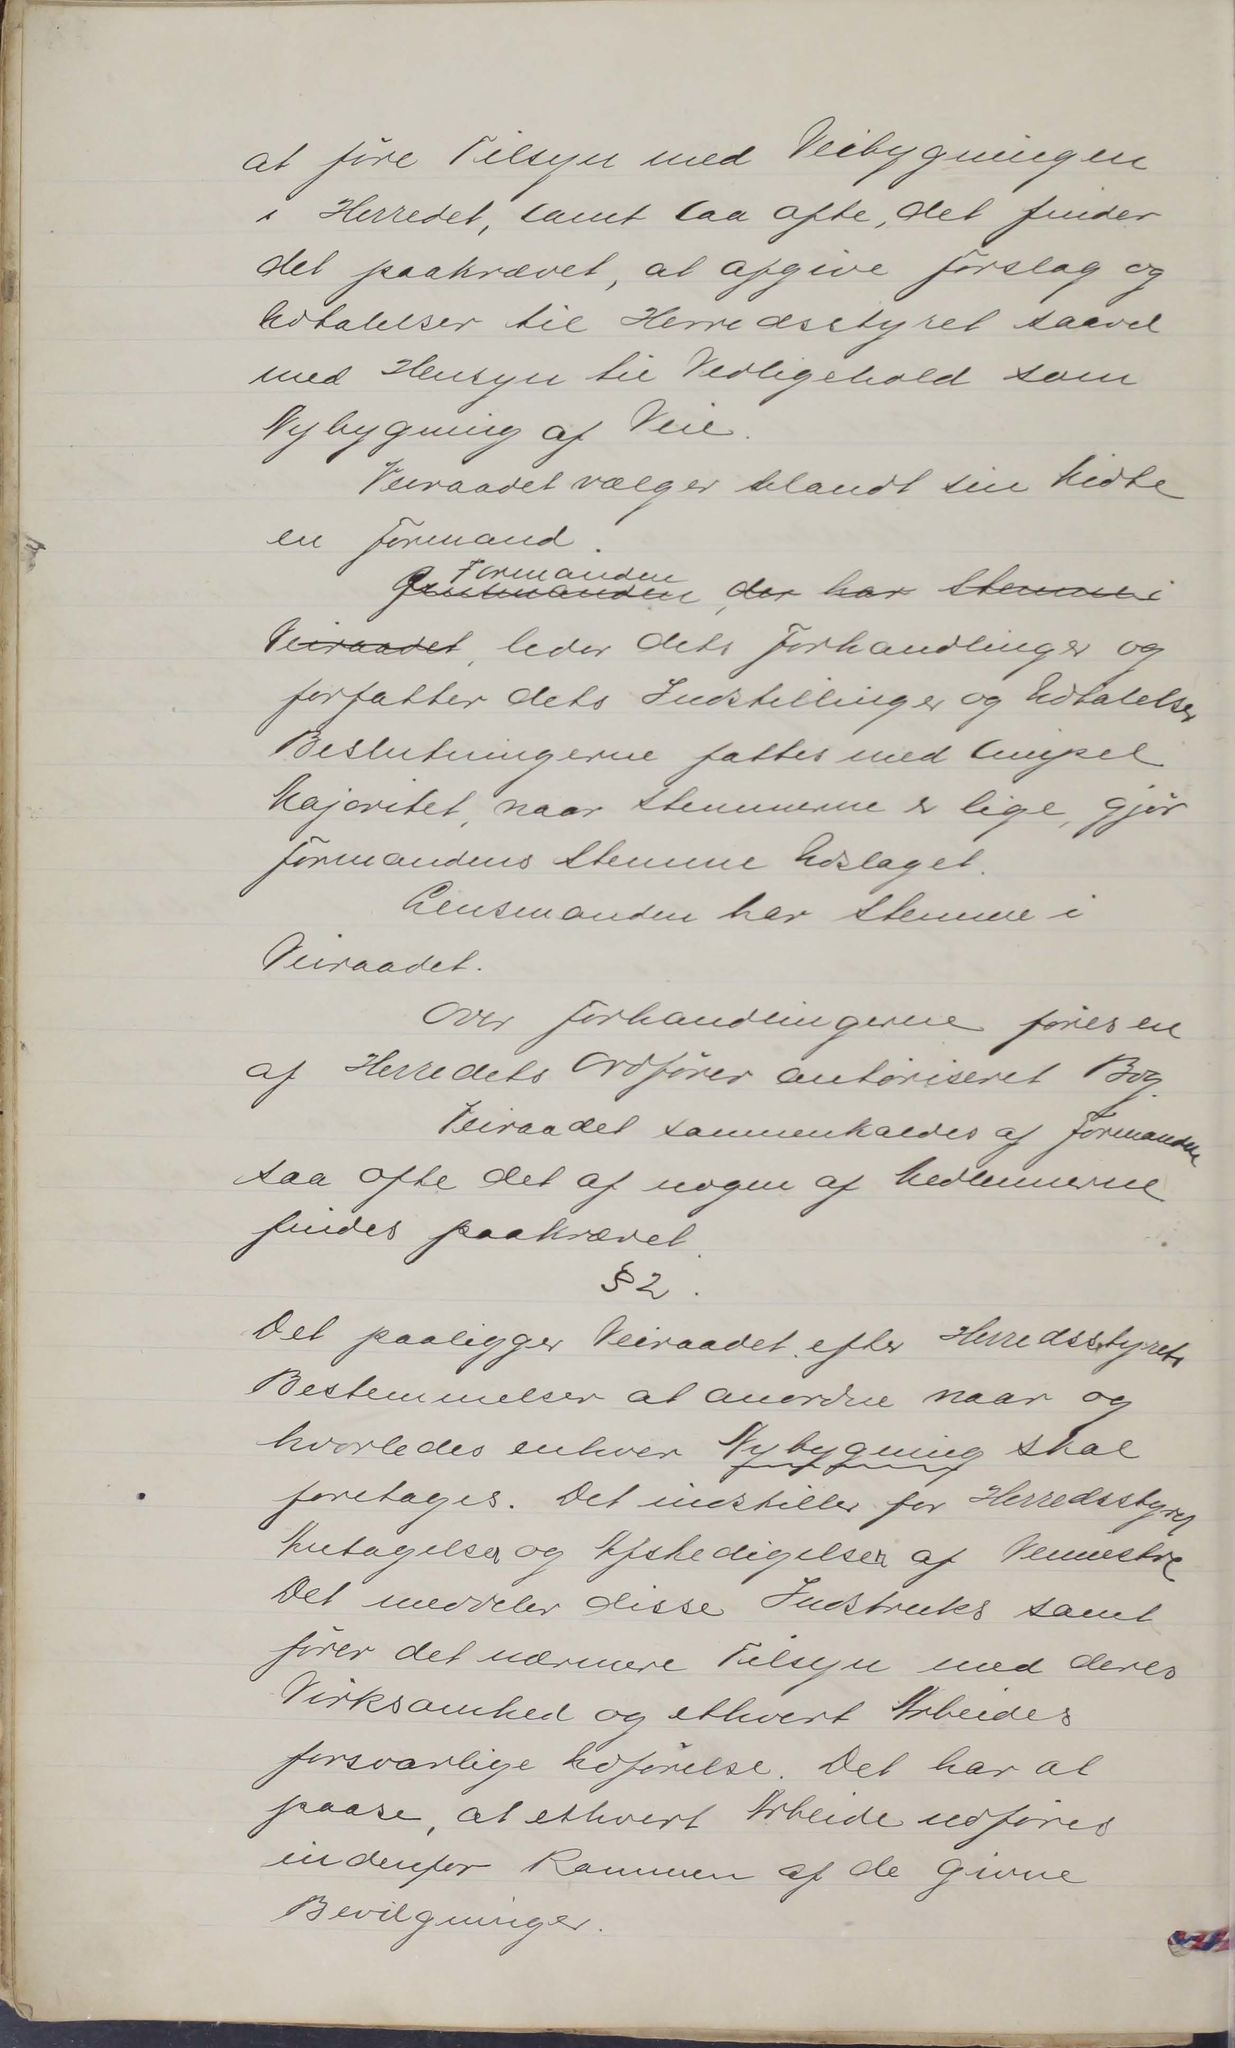 at føre Tilsyn med Veibygningen
i Herredet, samt saa ofte, det finder
det paakrævet, at afgive Forslag og
Udtalelser til Herredsstyret saavel
med Hensyn til Vedligehold som
Nybygning af Veie.
Veiraadet vælger blandt sin Midte
en Formand.
Formanden
Lensmanden, der har Stemme i
Veiraadet, leder dets Forhandlinger og
forfatter dets Indstillinger og Udtalelser
Beslutningerne fattes med simpel
Majoritet, naar Stemmerne er lige, gjør
Formandens Stemme Udslaget.
Lensmanden har Stemme i
Veiraadet.
Over Forhandlingerne føres en
af Herredets Ordfører autoriseret Bog.
Veiraadet sammenkaldes af Formanden
saa ofte det af nogen af Medlemmerne
findes paakrævet.
§ 2.
Det paaligger Veiraadet efter Herredsstyrets
Bestemmelser at anordne naar og
hvorledes enhver Nybygning skal
foretages. Det indstiller for Herredsstyret
Antagelse og Afskedigelse af Veimestre
Det meddeler disse Instruks samt
fører det nærmere Tilsyn med deres
Virksomhed og ethvert Arbeides
forsvarlige Udførelse. Det har at
paase, at ethvert Arbeide udføres
indenfor Rammen af de givne
Bevilgninger.